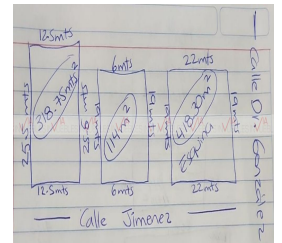 12.5mts
6mts
22mts
25.5 mts
318.75mts²
25.5 mts
19mts
114m²
19mts
19mts
418.30m²
Esquina
19mts
12.5mts
6mts
22mts
Calle Jimenez
Calle Dr. Gonzalez